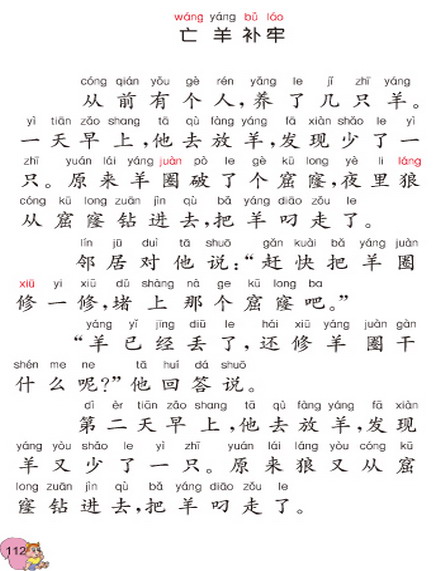 wáng yáng bǔ láo
亡羊补牢
cóng qián yǒu gè rén yǎng le jǐ zhī yáng
从前有个人，养了几只羊。
yì tiān zǎo shang tā qù fàng yáng fā xiàn shǎo le yì
一天早上，他去放羊，发现少了一
zhī yuán lái yáng juàn pò le gè kū long yè li láng
只。原来羊圈破了个窟窿，夜里狼
cóng kū long zuān jìn qù bǎ yáng diāo zǒu le
从窟窿钻进去，把羊叼走了。
lín jū duì tā shuō gǎn kuài bǎ yáng juàn
邻居对他说：“赶快把羊圈
xiū yi xiū dǔ shàng nà ge kū long ba
修一修，堵上那个窟窿吧。”
yáng yǐ jīng diū le hái xiū yáng juàn gàn
“羊已经丢了，还修羊圈干
shén me ne tā huí dá shuō
什么呢？”他回答说。
dì èr tiān zǎo shang tā qù fàng yáng fā xiàn
第二天早上，他去放羊，发现
yáng yòu shǎo le yì zhī yuán lái láng yòu cóng kū
羊又少了一只。原来狼又从窟
long zuān jìn qù bǎ yáng diāo zǒu le
窿钻进去，把羊叼走了。
112